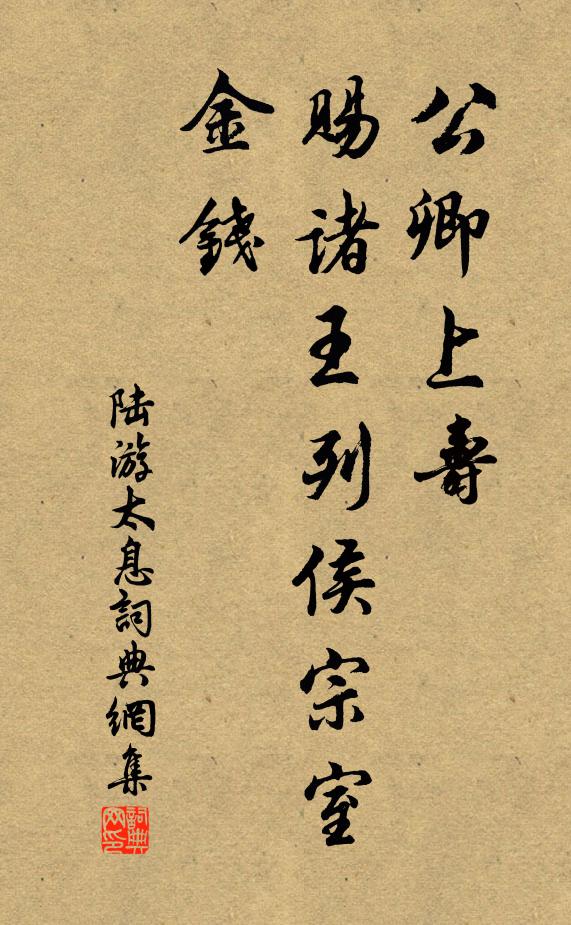 公卿上壽
賜诸王列侯宗室
金錢
陆游太息詞典網集
詞典网印